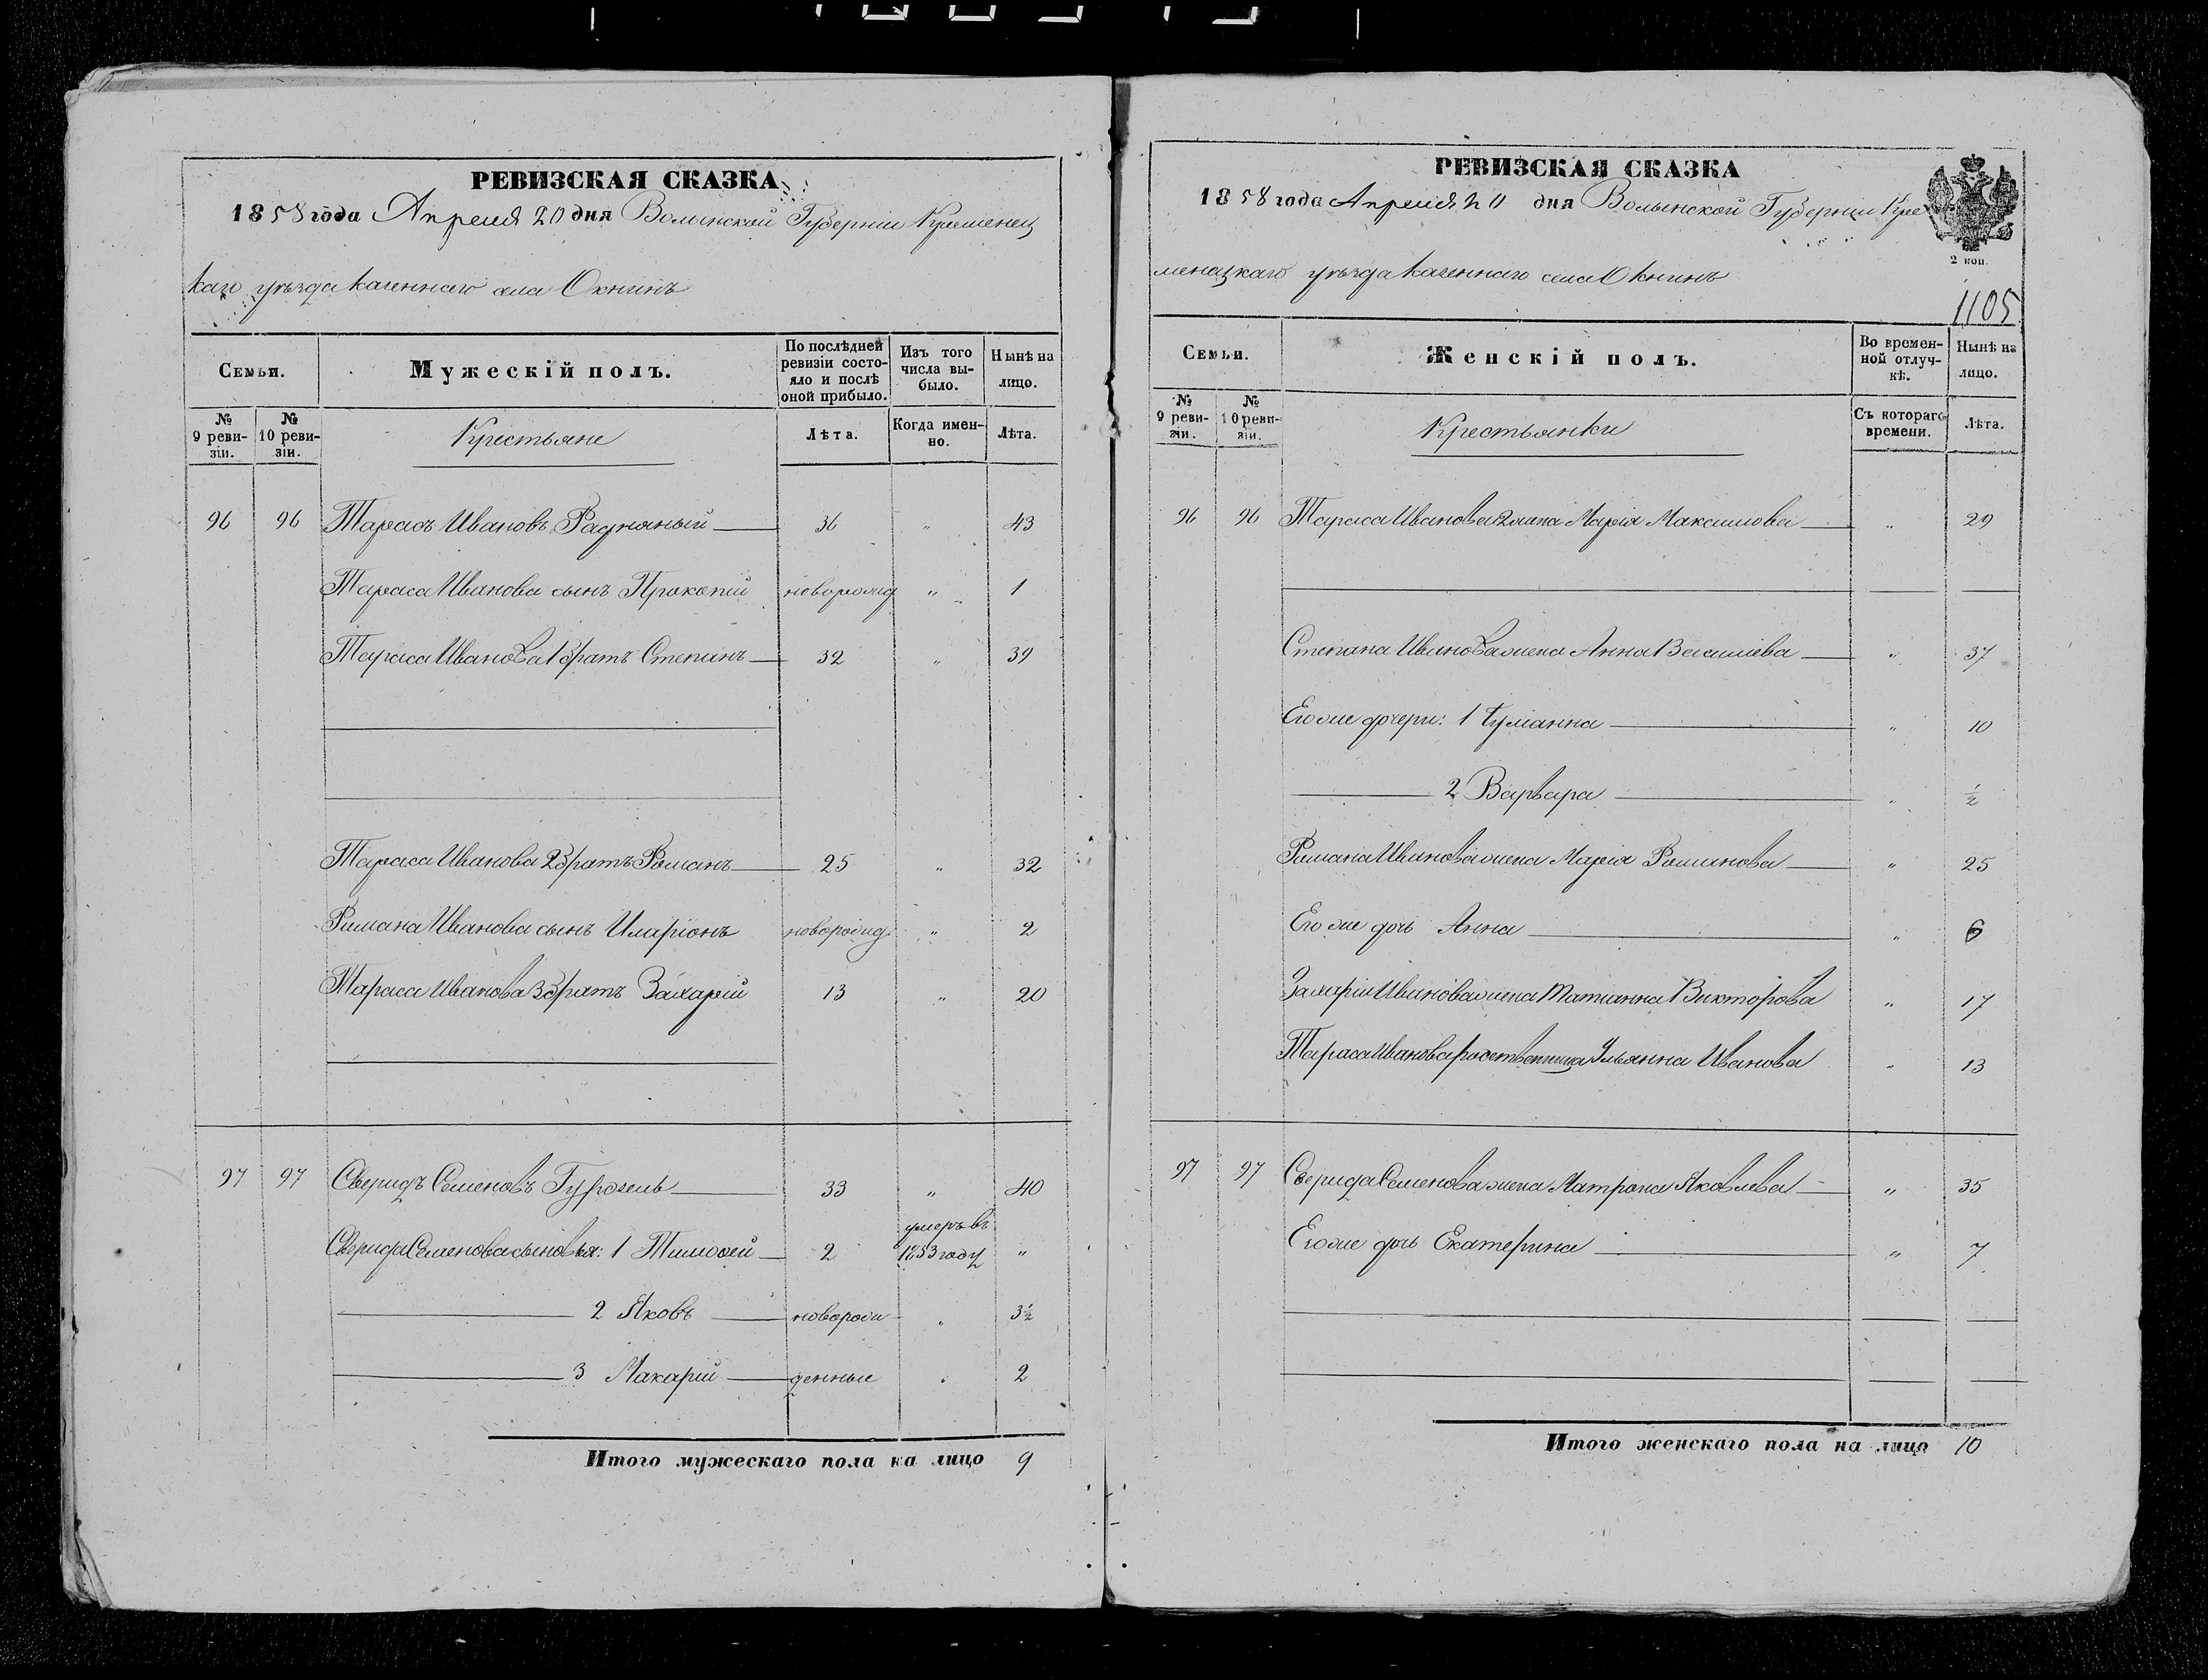 РЕВИЗСКАЯ СКАЗКА
1858 года Апреля 20 дня Волынской Губерніи Кременец
каго уѣзда казеннаго села Окнинъ
Семьи.
Мужескій полъ.
По послѣдней ревизіи состояло и послѣ оной прибыло.
Изъ того числа выбыло.
Нынѣ на лицо.
№ 9 ревизіи.
№ 10 ревизіи.
Крестьяне
Лѣта.
Когда именно.
Лѣта.
96 96 Тарасъ Ивановъ 36 " 43
Тараса Иванова сынъ Прокопій новорожд " 1
Тараса Иванова 1 братъ Степанъ 32 " 39
Тараса Иванова 2 братъ Романъ 25 " 32
Романа Иванова сынъ Иларіонъ новорожд. " 2
Тараса Иванова 3 братъ Захарій 13 " 20
97 97 Свиридъ Семеновъ 33 " 40
Свирида Семенова сыновья: 1 Тимофей 2 умеръ въ 1853 году "
2 Яковъ новорож " 3½
3 Макарій денные " 2
Итого мужескаго пола на лицо 9
РЕВИЗСКАЯ СКАЗКА
1858 года Апреля 20 дня Волынской Губерніи Кре
2 коп.
менецкаго уѣзда казеннаго села Окнинъ
1105
Семьи.
Женскій полъ.
Во временной отлучкѣ.
Нынѣ на лицо.
№ 9 ревизіи.
№ 10 ревизіи.
Крестьянки
Съ котораго времени.
Лѣта.
96 96 Тараса Иванова 2 жена Марія Максимова " 29
Степана Иванова жена Анна Василіева " 37
Его же дочери: 1 " 10
2 Варвара " ½
Романа Иванова жена Марія Романова " 25
Его же дочь Анна " 6
Захарія Иванова жена Татіанна Викторова " 17
Тараса Иванова родственница Ульянна Иванова " 13
97 97 Свирида Семенова жена Матрона Яковлева " 35
Его же дочь Екатерина " 7
Итого женскаго пола на лицо 10